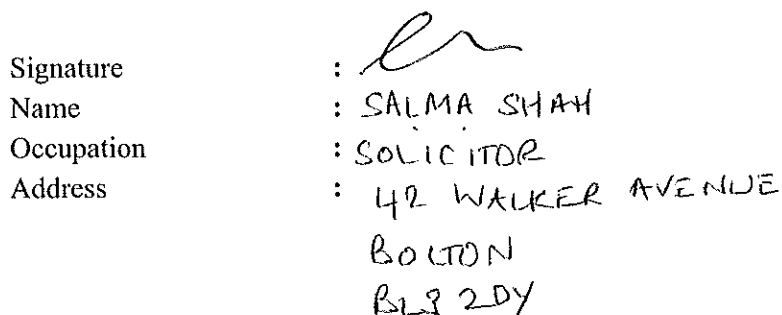 Signature :
Name : SALMA SHAH
Occupation : SOLICITOR
Address : 42 WALKER AVENUE
BOLTON
2DY